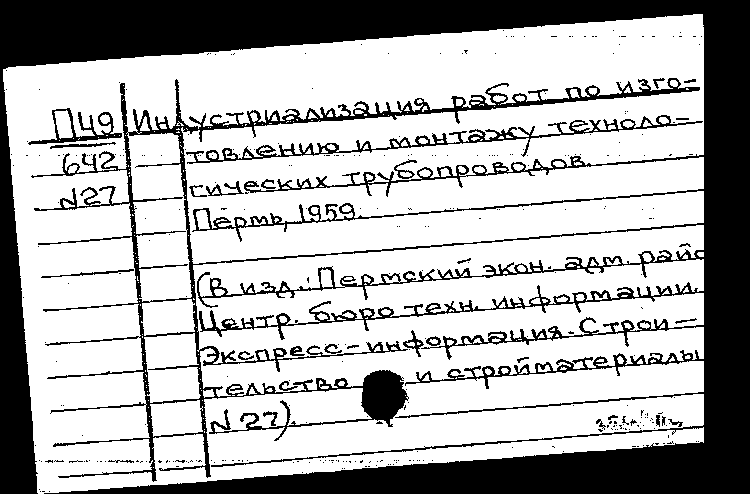 П49 Индустриализация работ по изго=
642 товлению и монтажу техноло=
N27 гических трубопроводов.
Пермь, 1959.
(В изд.: Пермский экон. адм. райо
Центр. бюро техн. информации.
Экспресс-информация. Строи=
тельство и стройматериалы
N 27).